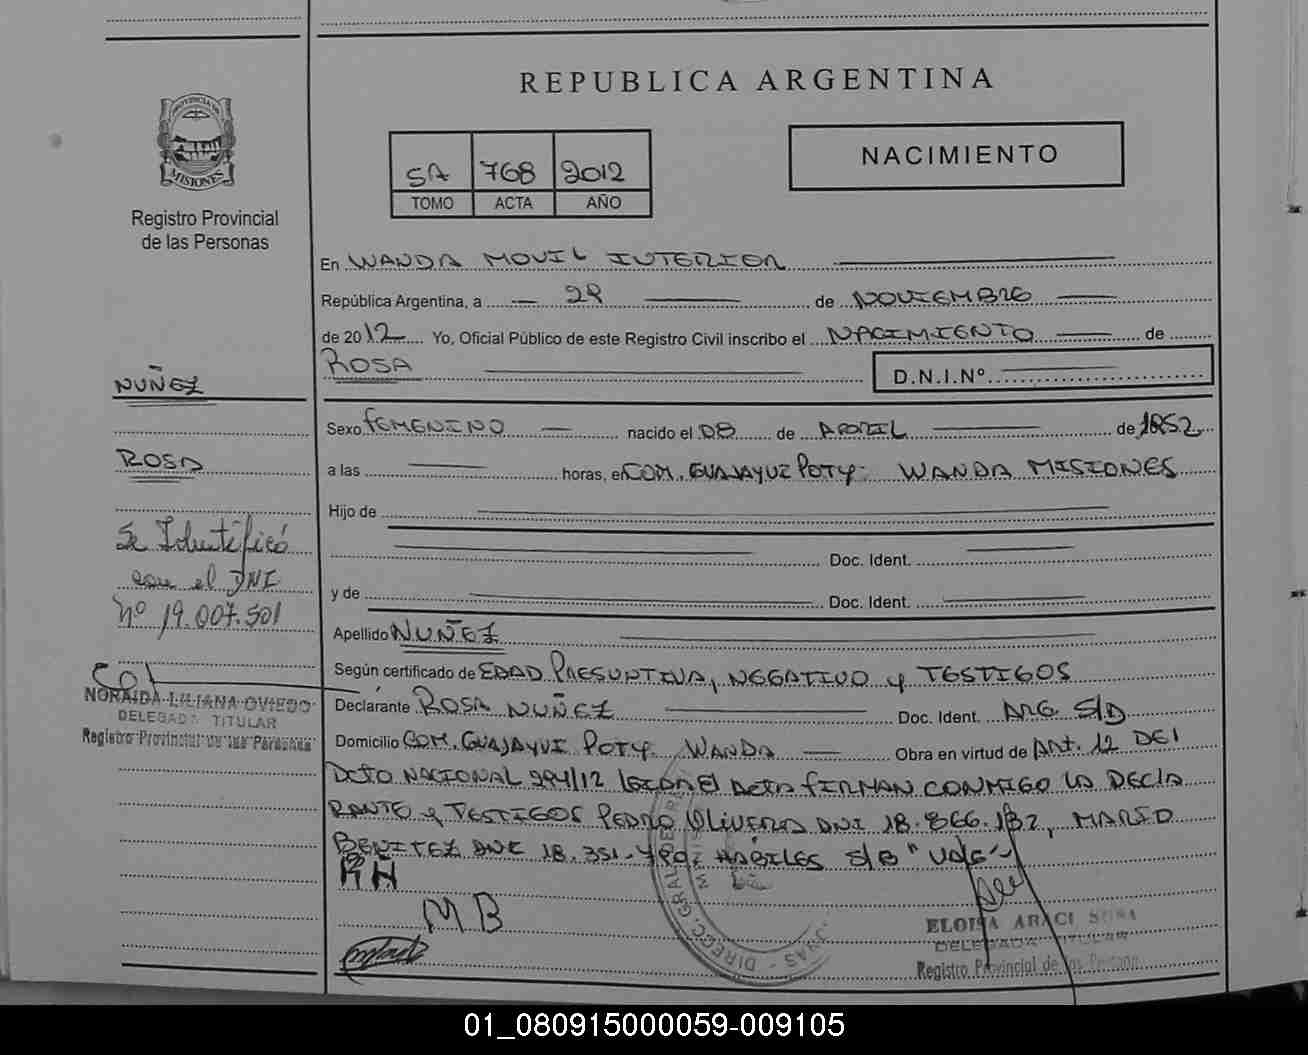 REPUBLICA ARGENTINA
PROVINCIA DE
MISIONES
Registro Provincial
de las Personas
5A 768 2012
TOMO ACTA AÑO
NACIMIENTO
En WANDA MOVIL INTERIOR
República Argentina, a 29 de NOVIEMBRE
de 2012 Yo, Oficial Público de este Registro Civil inscribo el NACIMIENTO de
ROSA D.N.I.Nº
NUÑEZ
ROSA
Se Identificó
con el DNI
Nº 19.007.501
NORAIDA LILIANA OVIEDO
DELEGADA TITULAR
Registro Provincial de las Personas
Sexo FEMENINO nacido el 08 de ABRIL de 1952
a las horas, en COM. GUAJAYVI POTY. WANDA MISIONES
Hijo de
Doc. Ident.
y de Doc. Ident.
Apellido NUÑEZ
Según certificado de EDAD PRESUNTIVA, NEGATIVO y TESTIGOS
Declarante ROSA NUÑEZ Doc. Ident. ARG. S/D
Domicilio COM. GUAJAYVI POTY. WANDA Obra en virtud de Art. 12 DEl
DCTO NACIONAL 294/12 leida El Acta FIRMAN CONMIGO LA DECLA
RANTE y TESTIGOS PEDRO OLIVERA DNI 18.866.132, MARIO
BENITEZ DNI 18.351. HABILES S/B "VALE"
RN
MB
ELOISA ARACI SOSA
DELEGADA TITULAR
Registro Provincial de las Personas
01_080915000059-009105